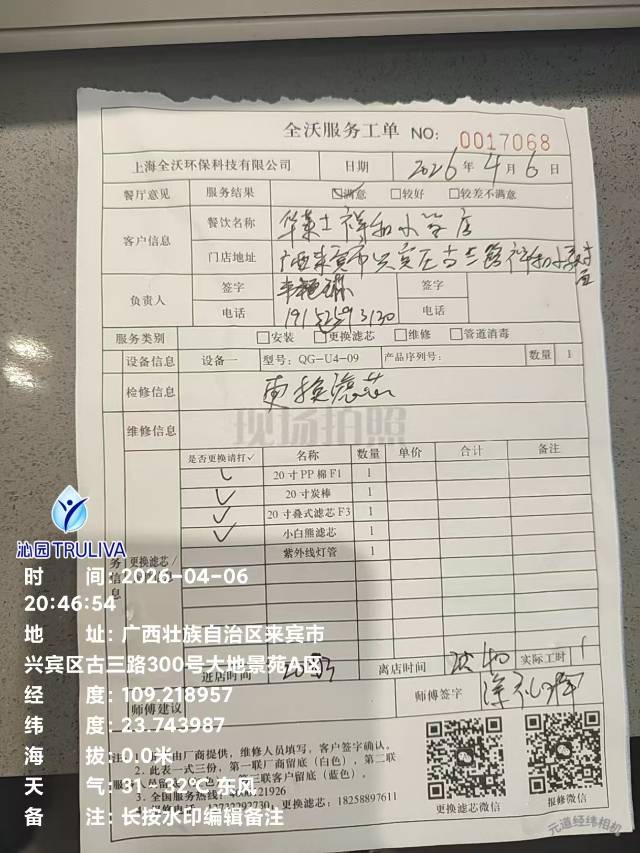 全沃服务工单 NO: 0017068
上海全沃环保科技有限公司 日期 2026年4月6日
餐厅意见 服务结果 ☑满意 □较好 □较差不满意
客户信息 餐饮名称 华莱士祥和小学店
门店地址 广西来宾市兴宾区古三路祥和小学
负责人 签字 签字
电话 19152593130 电话
服务类别 □安装 □更换滤芯 □维修 □管道消毒
设备信息 设备一 型号: QG-U4-09 产品序列号: 数量 1
检修信息 更换滤芯
维修信息
现场拍照
是否更换请打✓ 名称 数量 单价 合计 备注
✓ 20寸PP棉F1 1
✓ 20寸炭棒 1
✓ 20寸叠式滤芯F3 1
✓ 小白熊滤芯 1
紫外线灯管 1
务信息 更换滤芯/
进店时间 离店时间 实际工时 1
师傅建议 师傅签字
沁园TRULIVA
时间: 2026-04-06
20:46:54
地址: 广西壮族自治区来宾市
兴宾区古三路300号大地景苑A区
经度: 109.218957
纬度: 23.743987
海拔: 0.0米
天气: 31~32℃ 东风
备注: 长按水印编辑备注
由厂商提供，维修人员填写，客户签字确认。
2. 此表一式三份，第一联厂商留底（白色），第二联
三联客户留底（蓝色）。
3. 全国服务热线
更换滤芯: 18258897611
更换滤芯微信 报修微信
元道经纬相机